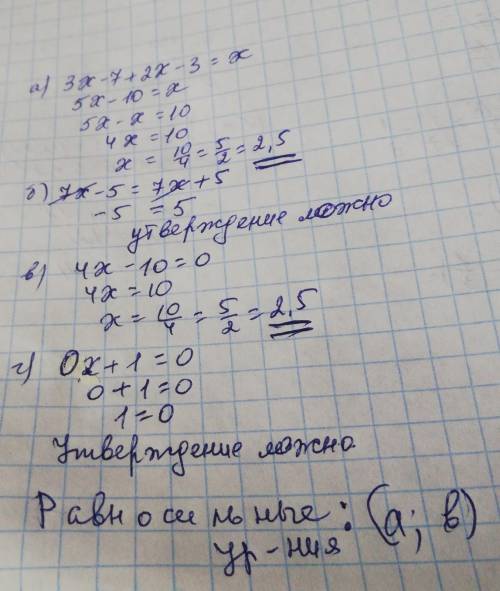 а) 3x-7+2x-3=x
5x-10=x
5x-x=10
4x=10
x=10/4=5/2=2,5
б) 7x-5=7x+5
-5=5
утверждение ложно
в) 4x-10=0
4x=10
x=10/4=5/2=2,5
г) 0x+1=0
0+1=0
1=0
Утверждение ложно.
Равносильные: (а; в)
ур-ния